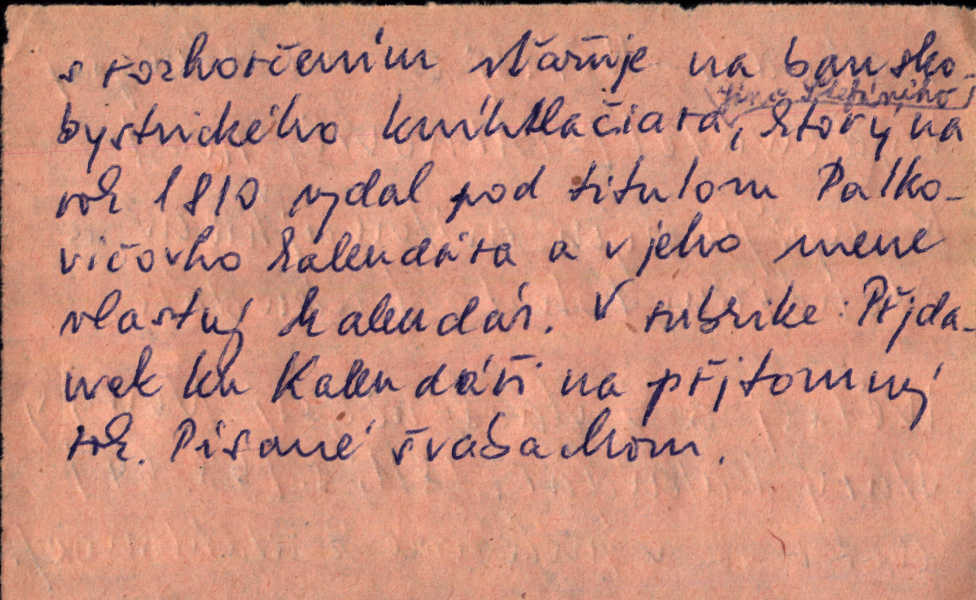 s rozhorčením sťažuje na bansko-
Jána Štefániho
bystrického kníhtlačiara, ktorý na
rok 1810 vydal pod titulom Palko-
vičovho kalendára a v jeho mene
vlastný kalendár. V rubrike: Přjda-
wek ku Kalendáři na přjtomný
rok. Písané švabachom.